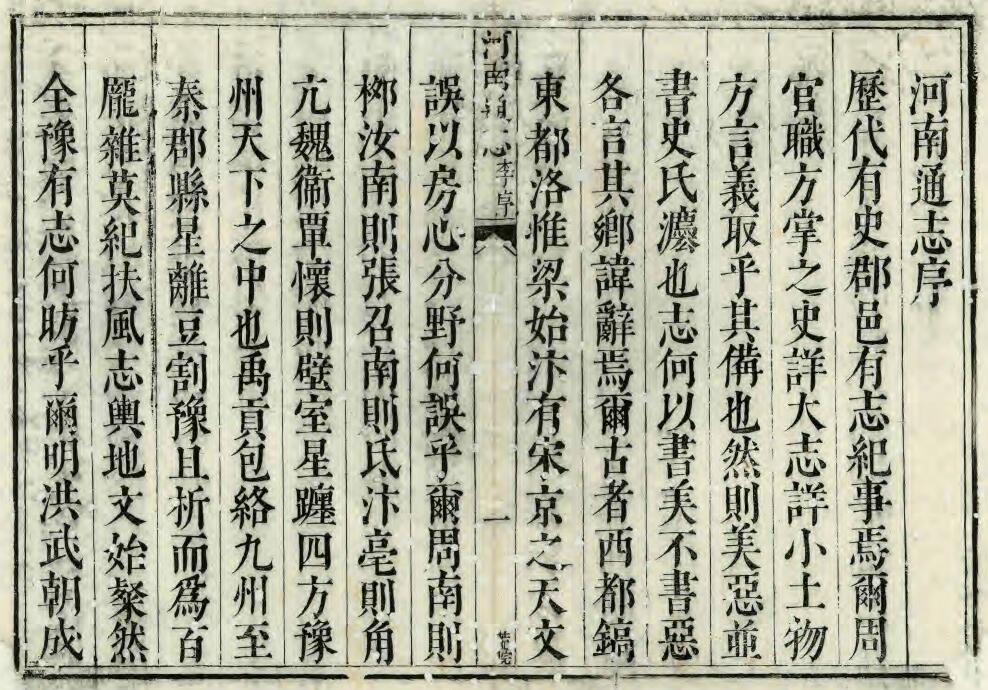 河南通志序
歷代有史郡邑有志紀事焉爾周
官職方掌之史詳大志詳小土物
方言義取乎其備也然則美惡並
書史氏灋也志何以書美不書惡
各言其鄉諱辭焉爾古者西都鎬
東都洛惟梁始汴有宋京之天文
河南通志 李序
一
誤以房心分野何誤乎爾周南則
柳汝南則張召南則氐汴亳則角
亢魏衞覃懷則壁室星躔四方豫
州天下之中也禹貢包絡九州至
秦郡縣星離豆割豫且折而爲百
龎雜莫紀扶風志輿地文始粲然
全豫有志何昉乎爾明洪武朝成